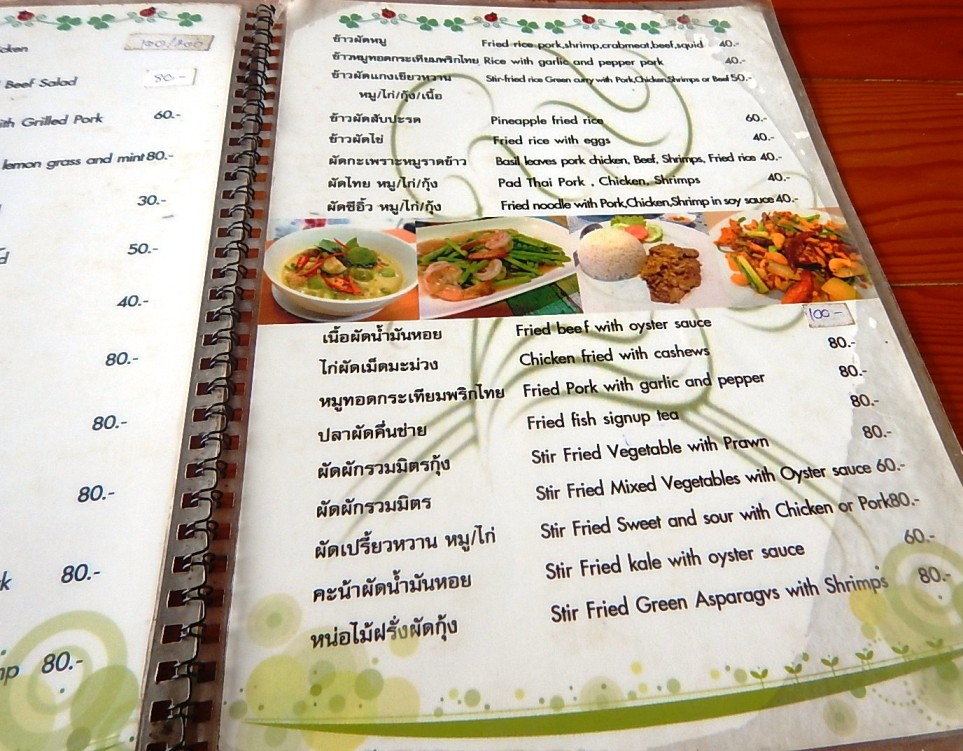 cken 100/200
Beef Salad 80.-
ith Grilled Pork 60.-
lemon grass and mint 80.-
30.-
50.-
40.-
80.-
80.-
80.-
80.-
80.-
ข้าวผัดหมู Fried rice pork,shrimp,crabmeat,beef,squid 40.-
ข้าวหมูทอดกระเทียมพริกไทย Rice with garlic and pepper pork 40.-
ข้าวผัดแกงเขียวหวาน Stir-fried rice Green curry with Pork,Chicken,Shrimps or Beef 50.-
หมู/ไก่/กุ้ง/เนื้อ
ข้าวผัดสับปะรด Pineapple fried rice 60.-
ข้าวผัดไข่ Fried rice with eggs 40.-
ผัดกะเพราะหมูราดข้าว Basil leaves pork chicken, Beef, Shrimps, Fried rice 40.-
ผัดไทย หมู/ไก่/กุ้ง Pad Thai Pork , Chicken, Shrimps 40.-
ผัดซีอิ้ว หมู/ไก่/กุ้ง Fried noodle with Pork,Chicken,Shrimp in soy sauce 40.-
เนื้อผัดน้ำมันหอย Fried beef with oyster sauce 100-
ไก่ผัดเม็ดมะม่วง Chicken fried with cashews 80.-
หมูทอดกระเทียมพริกไทย Fried Pork with garlic and pepper 80.-
ปลาผัดคื่นช่าย Fried fish signup tea 80.-
ผัดผักรวมมิตรกุ้ง Stir Fried Vegetable with Prawn 80.-
ผัดผักรวมมิตร Stir Fried Mixed Vegetables with Oyster sauce 60.-
ผัดเปรี้ยวหวาน หมู/ไก่ Stir Fried Sweet and sour with Chicken or Pork 80.-
คะน้าผัดน้ำมันหอย Stir Fried kale with oyster sauce 60.-
หน่อไม้ฝรั่งผัดกุ้ง Stir Fried Green Asparagvs with Shrimps 80.-